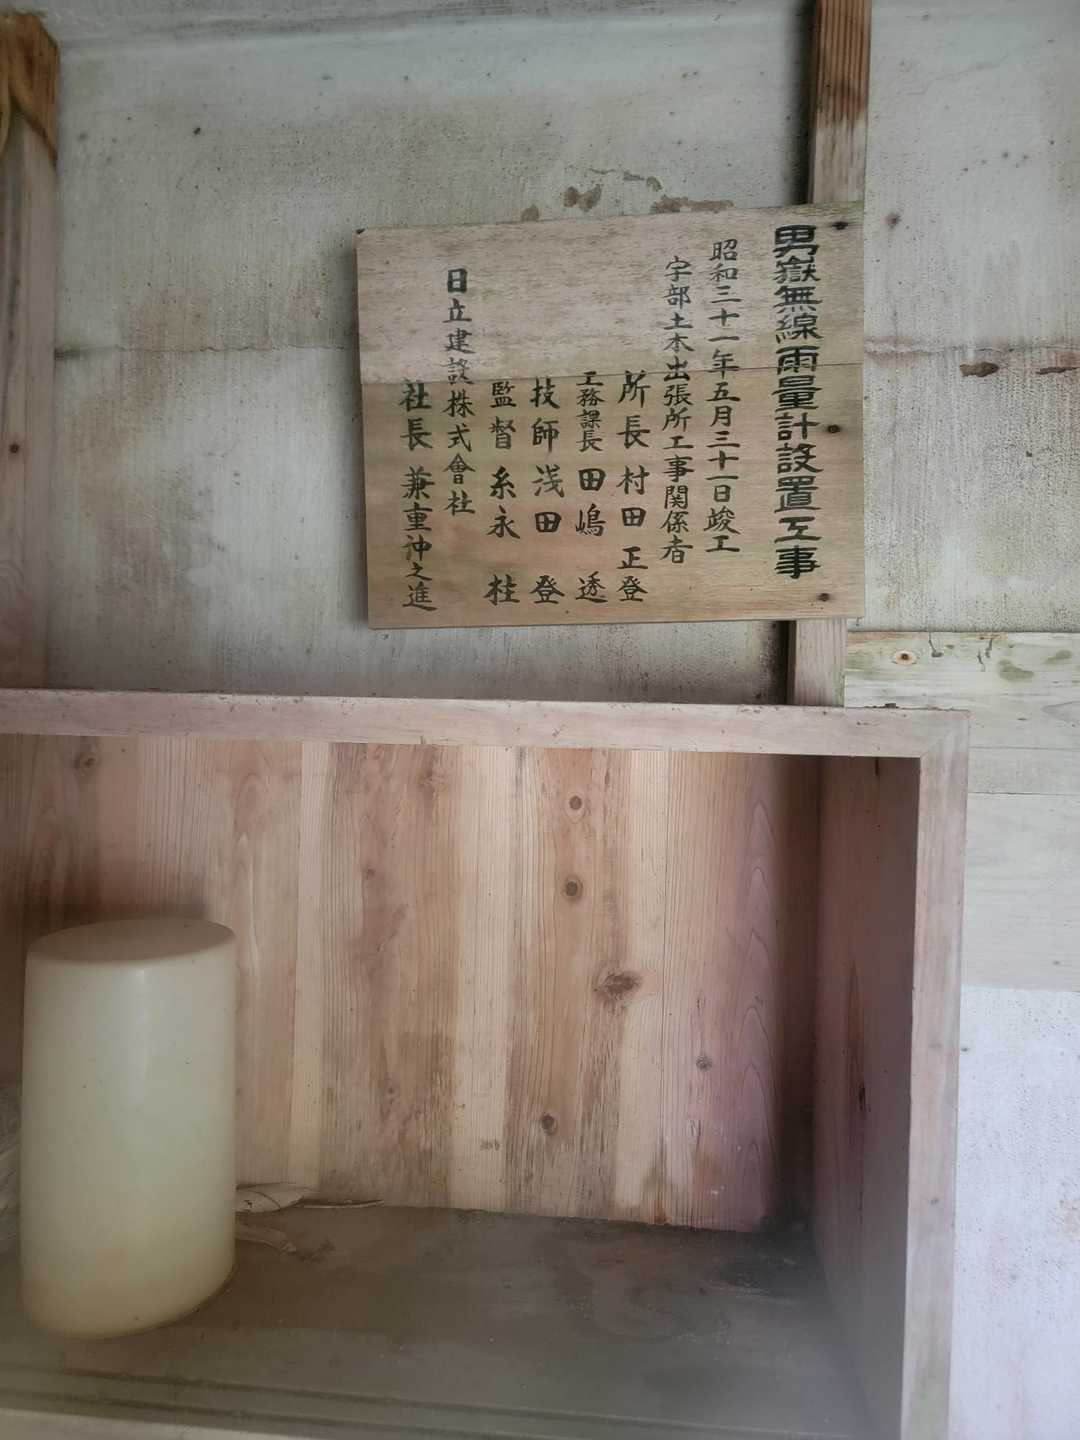 男嶽無線雨量計設置工事
昭和三十一年五月三十一日竣工
宇部土木出張所工事関係者
所長 村田正登
工務課長 田嶋 透
技師 浅田 登
監督 糸永 柱
日立建設株式會社
社長 兼重沖之進